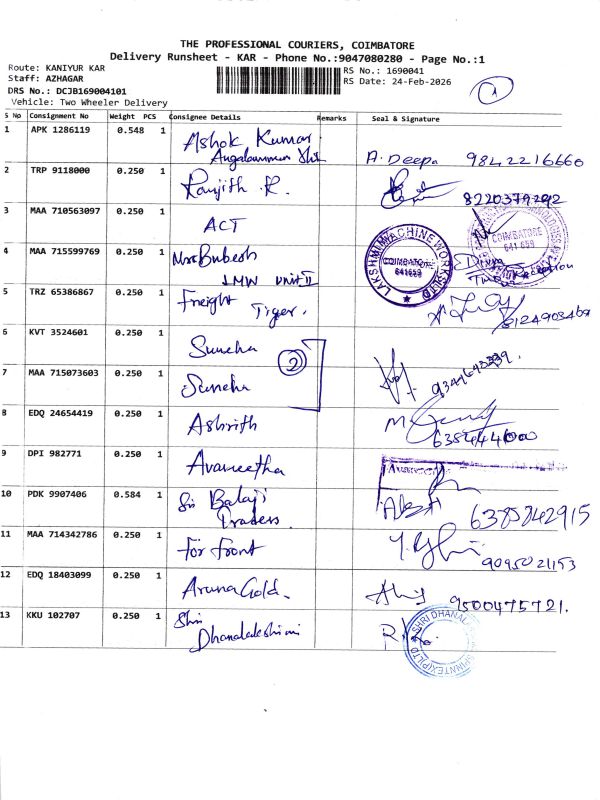 THE PROFESSIONAL COURIERS, COIMBATORE
Delivery Runsheet - KAR - Phone No.:9047080280 - Page No.:1
Route: KANIYUR KAR
Staff: AZHAGAR
DRS No.: DCJB169004101
Vehicle: Two Wheeler Delivery
RS No.: 1690041
RS Date: 24-Feb-2026
1
S No Consignment No Weight PCS Consignee Details Remarks Seal & Signature
1 APK 1286119 0.548 1 Ashok Kumar
A. Deepa 9842216660
2 TRP 9118000 0.250 1 Ranjith.R. 8220379292
3 MAA 710563097 0.250 1 ACT
COIMBATORE
641 659
4 MAA 715599769 0.250 1 Mr Bubesh
LMW Unit II
LAKSHMI MACHINE WORKS LTD
COIMBATORE
641659
5 TRZ 65386867 0.250 1 Freight
Tiger.
8124903469
6 KVT 3524601 0.250 1 Suneha
2
7 MAA 715073603 0.250 1 Suneha
8 EDQ 24654419 0.250 1 Ashrith
9 DPI 982771 0.250 1 Avaneetha
10 PDK 9907406 0.584 1 Sri Balaji
Traders.
6385842915
11 MAA 714342786 0.250 1 for front
9095021153
12 EDQ 18403099 0.250 1 Aruna Gold.
9500475721.
13 KKU 102707 0.250 1 Shri
Dhanalakshmi
SHRI DHANALA